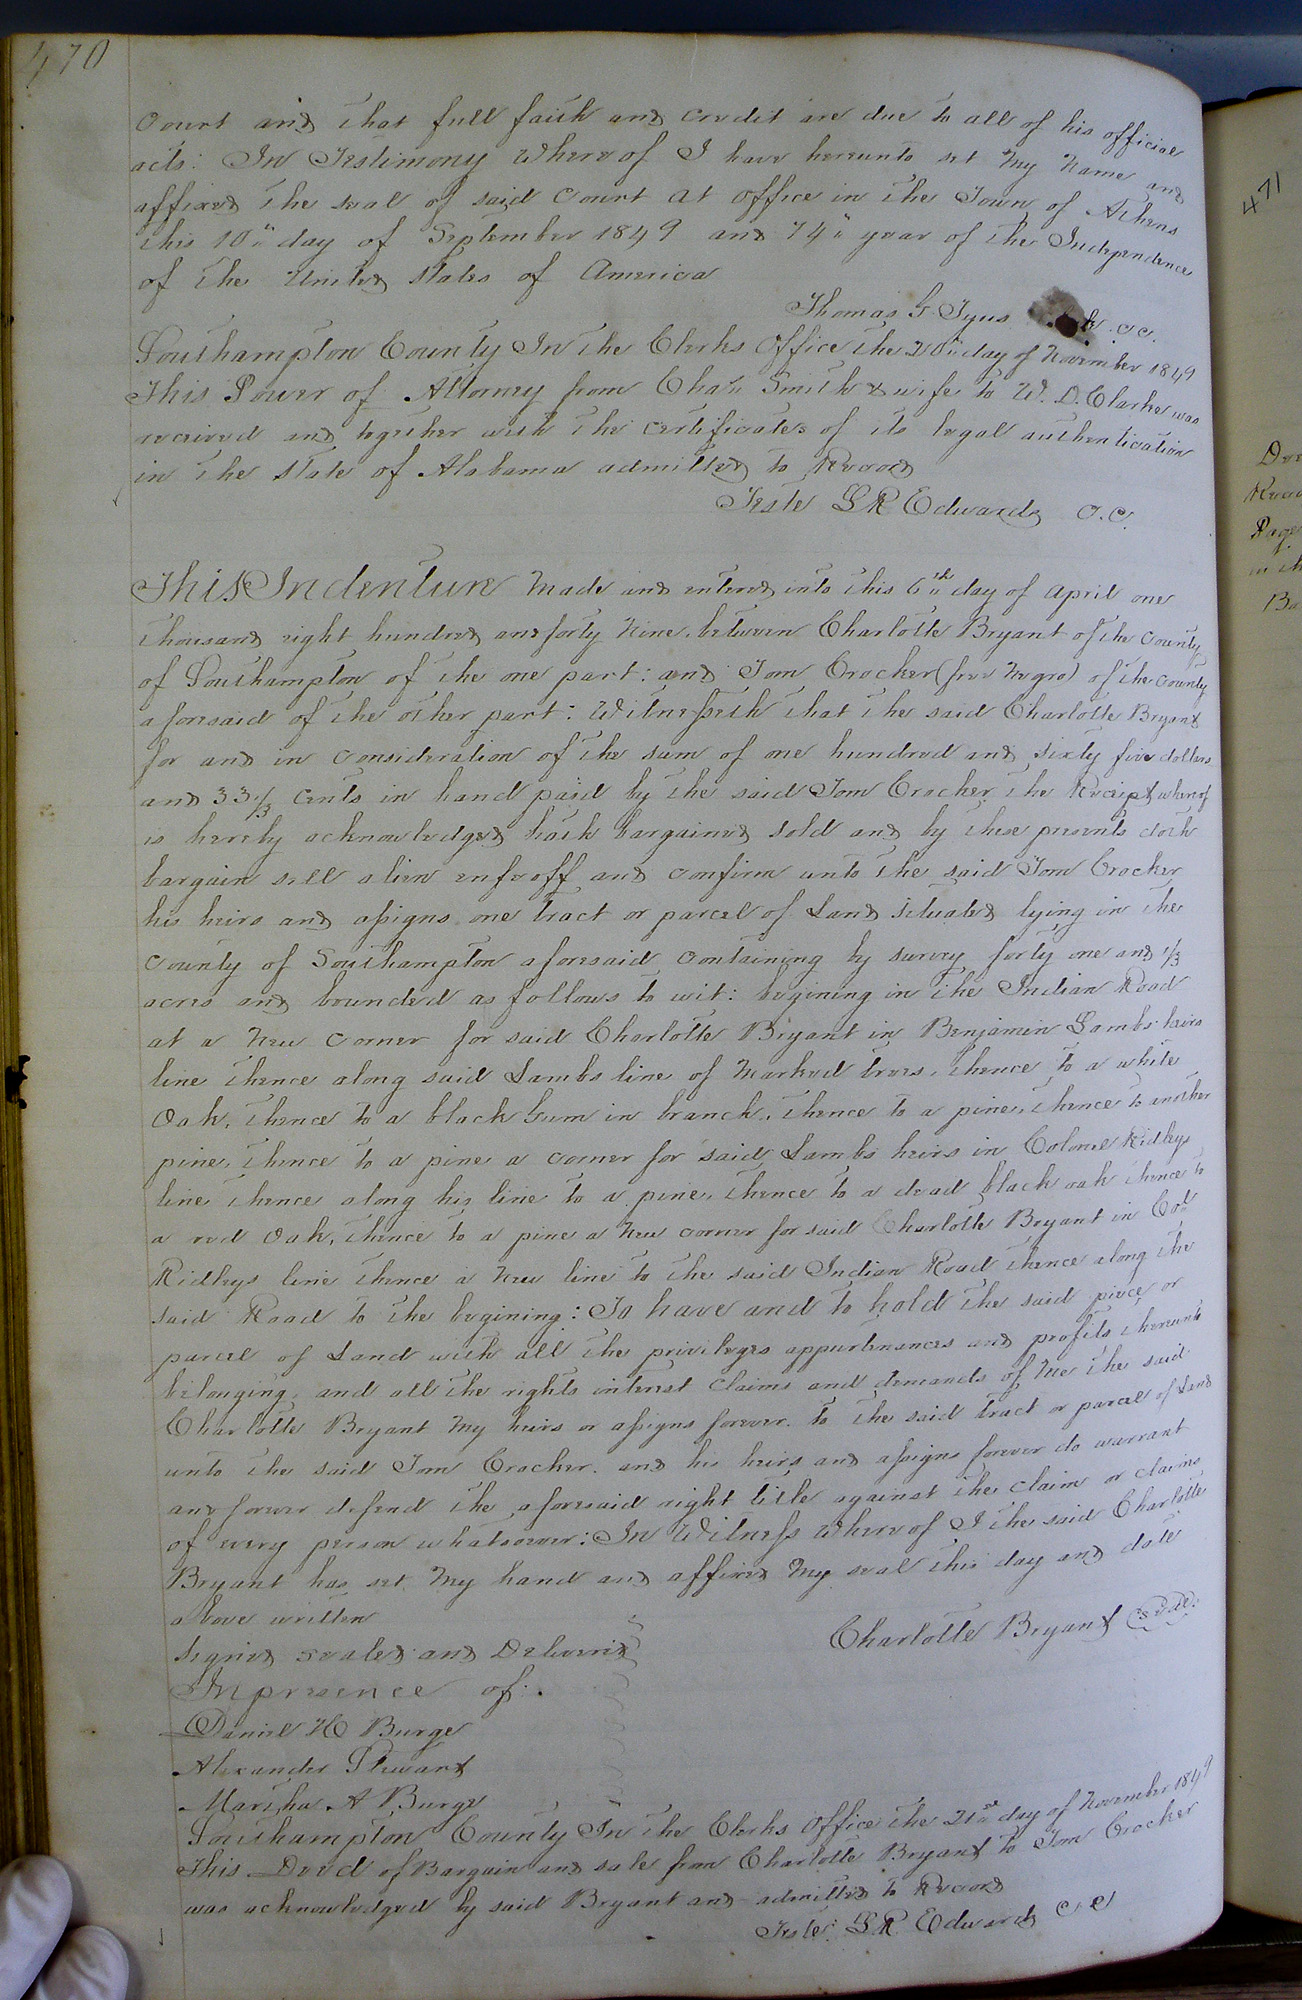 470
Court and that full faith and credit are due to all of his official
acts: In Testimony Whereof I have hereunto set My Name and
affixed the seal of said Court at office in the Town of Athens
this 10" day of September 1849 and 74" year of the Independence
of the United States of America
Thomas G Tyus C.C.
Southampton County In the Clerks Office the 20" day of November 1849
This Power of Attorney from Chas Smith & wife to W. D. Clarke was
received and together with the certificates of its legal authentication
in the State of Alabama admitted to Record
Teste L R Edwards C.C.
This Indenture Made and entered into this 6th day of April one
thousand eight hundred and forty Nine. between Charlotte Bryant of the County
of Southampton of the one part: and Tom Crocker (free Negro) of the County
aforesaid of the other part: Witnesseth that the said Charlotte Bryant
for and in consideration of the sum of one hundred and sixty five dollars
and 33 1/3 cents in hand paid by the said Tom Crocker the Receipt whereof
is hereby acknowledged hath bargained sold and by these presents doth
bargain sell alien enfeoff and confirm unto the said Tom Crocker
his heirs and assigns one tract or parcel of Land situated lying in the
County of Southampton aforesaid containing by survey forty one and 1/3
acres and bounded as follows to wit: begining in the Indian Road
at a New corner for said Charlotte Bryant in Benjamin Lambs heirs
line thence along said Lambs line of Marked trees, thence to a white
Oak, thence to a black Gum in branch, thence to a pine, thence to another
pine, thence to a pine a corner for said Lambs heirs in Colonel Ridleys
line thence along his line to a pine, thence to a dead black oak thence to
a red Oak, thence to a pine a New corner for said Charlotte Bryant in Col
Ridleys line thence a New line to the said Indian Road thence along the
said Road to the begining: To have and to hold the said piece or
parcel of Land with all the privileges appurtenances and profits thereunto
belonging, and all the rights interest claims and demands of Me the said
Charlotte Bryant My heirs or assigns forever. to the said tract or parcel of Land
unto the said Tom Crocker. and his heirs and assigns forever do warrant
and forever defend the aforesaid right title against the claim or claims
of every person whatsoever: In Witness Whereof I the said Charlotte
Bryant has set My hand and affixed My seal this day and date
above written
Charlotte Bryant Seal
Signed sealed and Delivered
In presence of:
Daniel H Burge
Alexander Stewart
Martha A Burge
Southampton County In the Clerks Office the 21st day of November 1849
This Deed of Bargain and sale from Charlotte Bryant to Tom Crocker
was acknowledged by said Bryant and admitted to Record
Teste: L R Edwards C C
471
Page